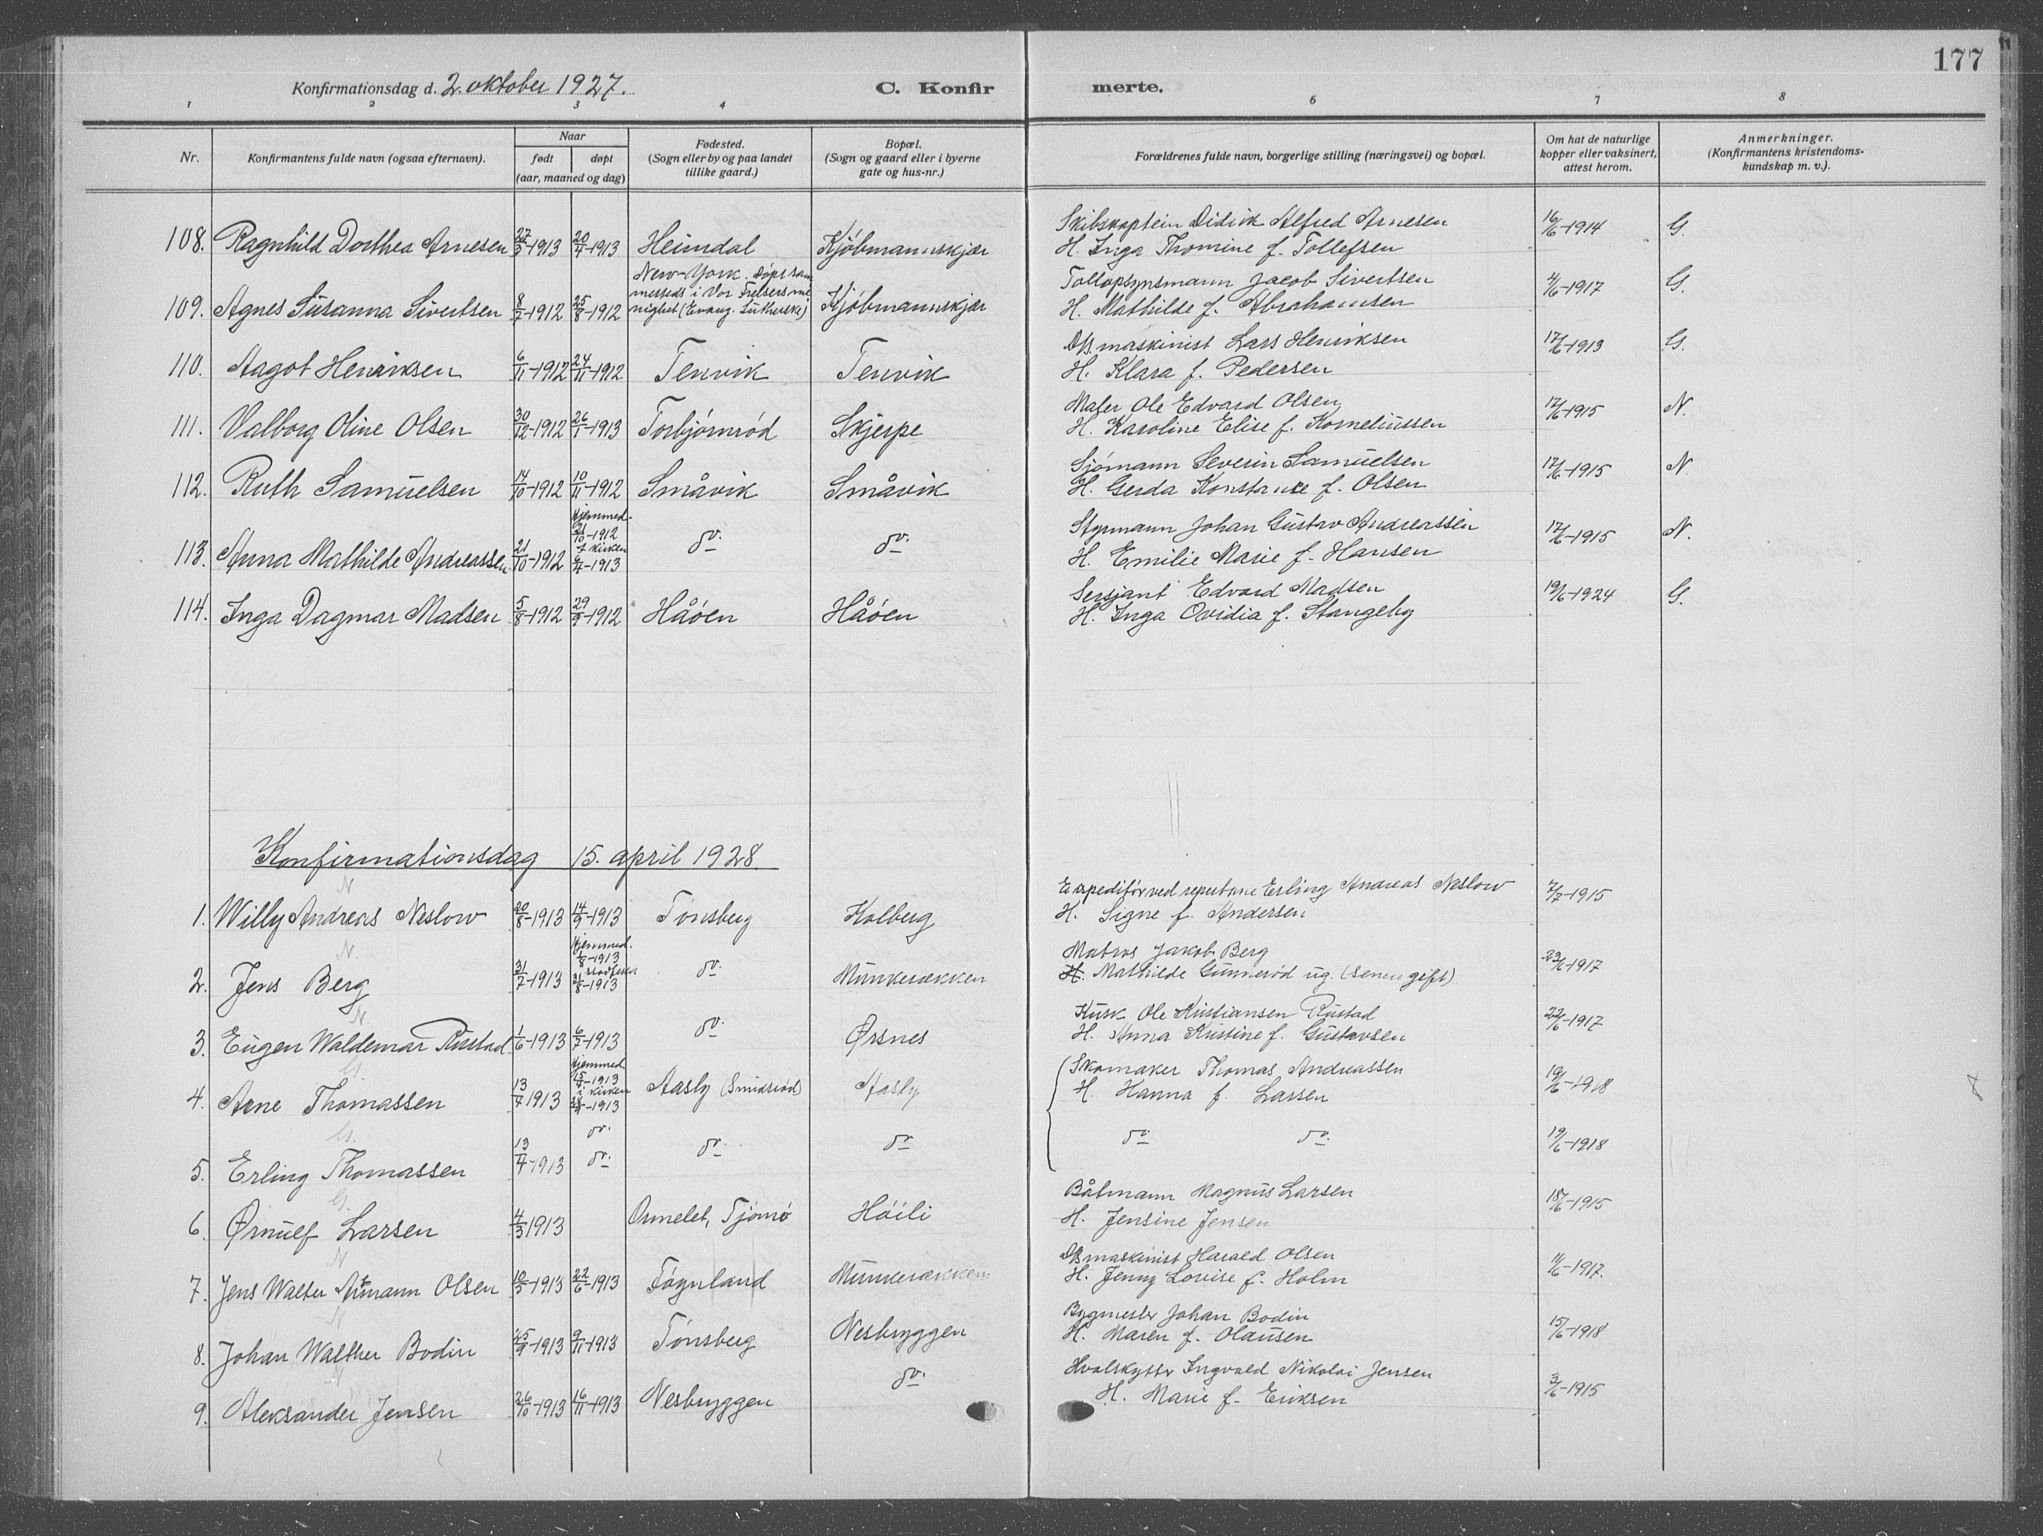 177
Konfirmationsdag d. 2. oktober 1927.
C. Konfir merte.
1 2 3 4 6 7 8
Nr.
Konfirmantens fulde navn (ogsaa efternavn).
Naar
født døpt
(aar, maaned og dag)
Fødested.
(Sogn eller by og paa landet
tillike gaard.)
Bopæl.
(Sogn og gaard eller i byerne
gate og hus-nr.)
Forældrenes fulde navn, borgerlige stilling (næringsvei) og bopæl.
Om hat de naturlige
kopper eller vaksinert,
attest herom.
Anmerkninger.
(Konfirmantens kristendoms-
kundskap m. v.).
Skibskaptein Didrik Alfred Arnesen 16/6-1914 G.
108. Ragnhild Dorthea Arnesen 27/3-1913 20/4-1913 Heimdal Kjøbmannskjær
H. Inga Thomine f. Tollefsen
New-York. Døpt sam
mesteds i Vor Frelsers me
nighet (Evang. Lutherske)
Tollopsynsmann Jacob Sivertsen 4/6-1917 G.
109. Agnes Susanna Sivertsen 8/7-1912 25/8-1912 Kjøbmannskjær
H. Mathilde f. Abrahamsen
D/S maskinist Lars Henriksen 17/6-1913 G.
110. Aagot Henriksen 6/11-1912 24/11-1912 Tenvik Tenvik
H. Klara f. Pedersen
Maler Ole Edvard Olsen 17/6-1915 N.
111. Valborg Oline Olsen 30/12-1912 26/1-1913 Torbjørnrød Skjerpe
H. Karoline Elise f. Korneliussen
Sjømann Severin Samuelsen 17/6-1915 N
112. Ruth Samuelsen 14/10-1912 10/11-1912 Småvik Småvik
H. Gerda Konstance f. Olsen
Hjemmed.
21/10-1912
i kirken
6/4-1913
Styrmann Johan Gustav Andreassen 17/6-1915 N.
113. Anna Mathilde Andreassen 21/10-1912 do. do.
H. Emilie Marie f. Hansen
Sersjant Edvard Madsen 19/6-1924 G.
114. Inga Dagmar Madsen 5/8-1912 29/9-1912 Håøen Håøen
H. Inga Ovidia f. Stangeby
Konfirmationsdag 15. april 1928.
N
Expeditør ved Erling Andreas Neslow 7/7-1915
1. Willy Andreas Neslow 20/8-1913 14/9-1913 Tønsberg Kolberg
H. Signe f. Andersen
N.
Hjemmed.
1/8-1913
31/8-1913
Matros Jakob Berg 23/6-1917
2. Jens Berg 31/7-1913 do. Munkerekken
H. Mathilde Gunnerød ug. (senere gift)
N
Kusk Ole Kristiansen Rustad 22/6-1917
3. Eugen Waldemar Rustad 1/6-1913 6/7-1913 do. Ørsnes
H. Anna Kristine f. Gustavsen
G.
Hjemmed.
15/7-1913
i kirken
Skomaker Thomas Andreassen 19/6-1918
4. Arne Thomassen 13/7 1913 Aasly (Smidsrød) Aasly
H. Hanna f. Larsen
G.
do. do. 19/6-1918
5. Erling Thomassen 13/7-1913 do. do. do. do
G.
Båtmann Magnus Larsen 18/6-1915
6. Ørnulf Larsen 4/3 1913 Ormelet, Tjømø Høili
H. Jensine Jensen
N
D/S maskinist Harald Olsen 11/6-1917.
7. Jens Walter Armann Olsen 10/5-1913 22/6-1913 Føynland Munkerekken
H. Jenny Lovise f. Holm
N
Bygmester Johan Bodin 15/6-1918
8. Johan Walther Bodin 25/9-1913 9/11-1913 Tønsberg Nesbryggen
H. Maren f. Olausen
N
Hvalskytter Ingvald Nikolai Jensen 3/6-1915
9. Aleksander Jensen 26/10-1913 16/11-1913 Nesbryggen do.
H. Marie f. Eriksen